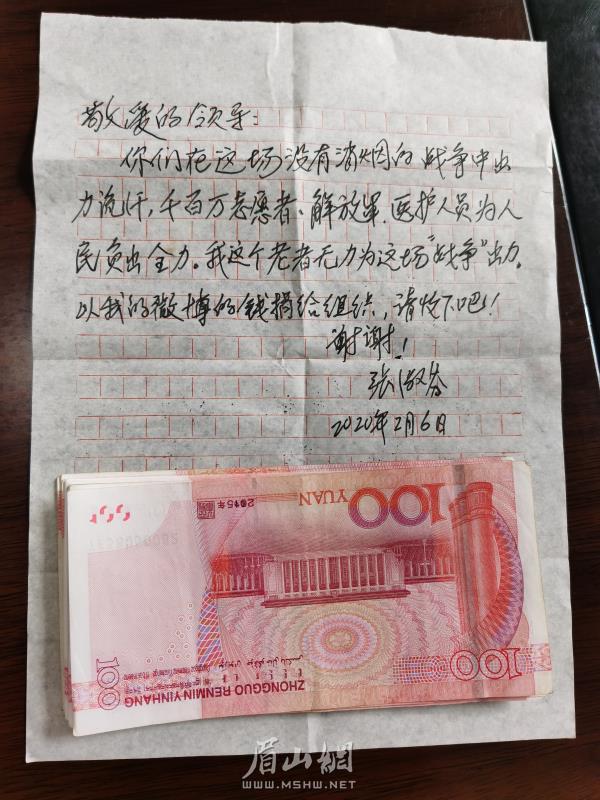 敬爱的领导:
你们在这场没有消烟的战争中出
力流汗,千百万志愿者、解放军、医护人员为人
民负出全力。我这个老者无力为这场“战争”出力。
以我的微博的钱捐给组织,请收下吧!
谢谢!
张淑芬
2020年2月6日
100
YUAN
2015年
100
100
ZHONGGUO RENMIN YINHANG
眉山網
WWW.MSHW.NET